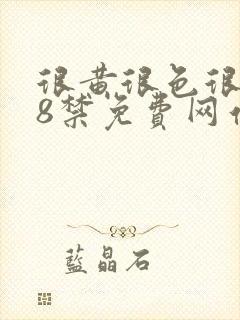 很黄很色很
8禁免費网
蓝晶石